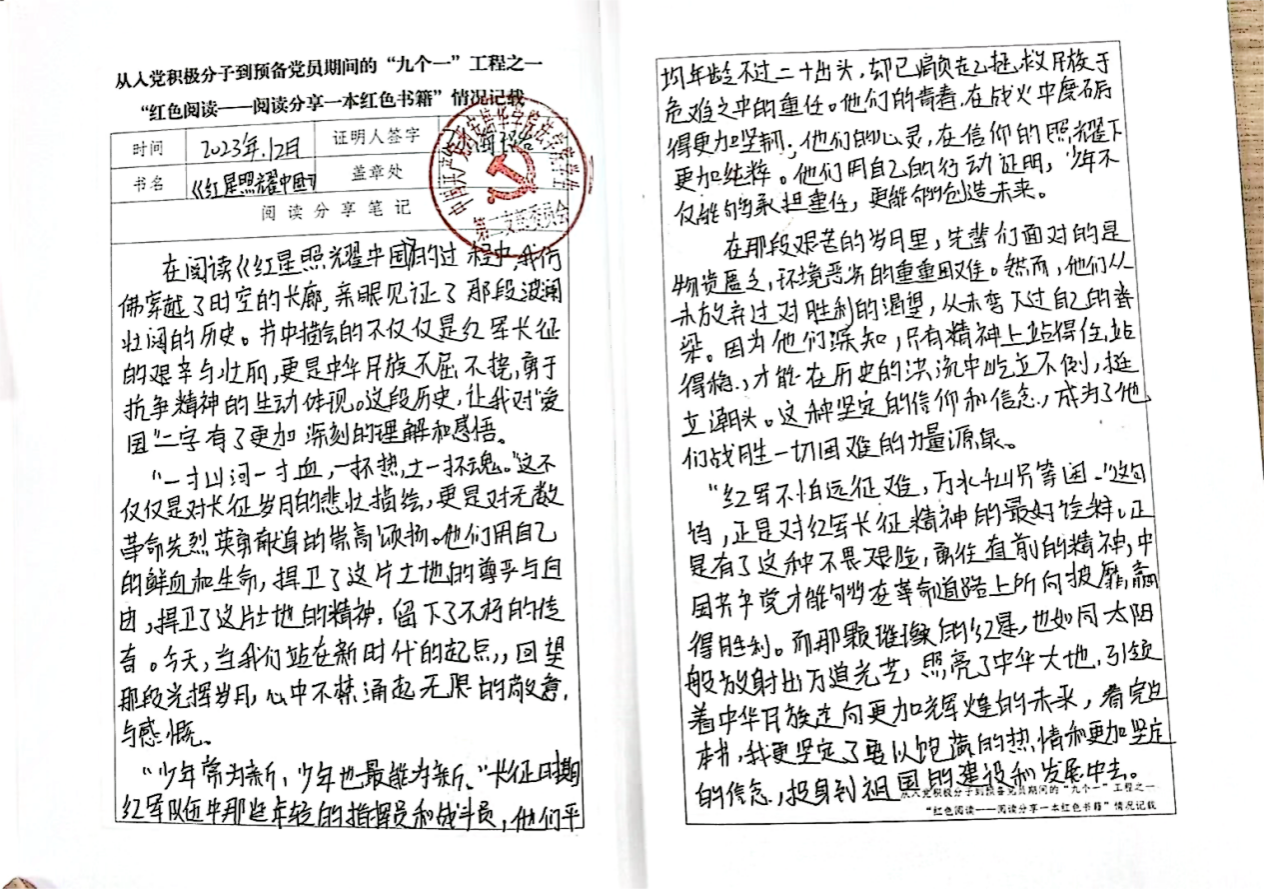 从入党积极分子到预备党员期间的“九个一”工程之一
“红色阅读——阅读分享一本红色书籍”情况记载
时间 2023年.12月 证明人签字
书名 《红星照耀中国》 盖章处
阅读分享笔记
第二支部委员会
在阅读《红星照耀中国》的过程中,我仿
佛穿越了时空的长廊,亲眼见证了那段波澜
壮阔的历史。书中描绘的不仅仅是红军长征
的艰辛与壮丽,更是中华民族不屈不挠,勇于
抗争精神的生动体现。这段历史,让我对“爱
国”二字有了更加深刻的理解和感悟。
“一寸山河一寸血,一抔热土一抔魂。”这不
仅仅是对长征岁月的悲壮描绘,更是对无数
革命先烈英勇献身的崇高颂扬。他们用自己
的鲜血和生命,捍卫了这片土地的尊严与自
由,捍卫了这片土地的精神,留下了不朽的传
奇。今天,当我们站在新时代的起点,回望
那段光辉岁月,心中不禁涌起无限的敬意,
与感慨。
“少年常为新,少年也最能为新。”长征时期
红军队伍中那些年轻的指挥员和战斗员,他们平
均年龄不过二十出头,却已肩负起拯救民族于
危难之中的重任。他们的青春,在战火中磨砺
得更加坚韧;他们的心灵,在信仰的照耀下
更加纯粹。他们用自己的行动证明,少年不
仅能够承担重任,更能够创造未来。
在那段艰苦的岁月里,先辈们面对的是
物资匮乏,环境恶劣的重重困难。然而,他们从
未放弃过对胜利的渴望,从未弯下过自己的脊
梁。因为他们深知,只有精神上站得住,站
得稳,才能在历史的洪流中屹立不倒,挺
立潮头。这种坚定的信仰和信念,成为了他
们战胜一切困难的力量源泉。
“红军不怕远征难,万水千山只等闲.”这句
诗,正是对红军长征精神的最好诠释。正
是有了这种不畏艰险,勇往直前的精神,中
国共产党才能够在革命道路上所向披靡,赢
得胜利。而那颗璀璨的红星,也如同太阳
般放射出万道光芒,照亮了中华大地,引领
着中华民族走向更加辉煌的未来,看完这
本书,我更坚定了要以饱满的热情和更加坚定
的信念,投身到祖国的建设和发展中去。
从入党积极分子到预备党员期间的“九个一”工程之一
“红色阅读——阅读分享一本红色书籍”情况记载